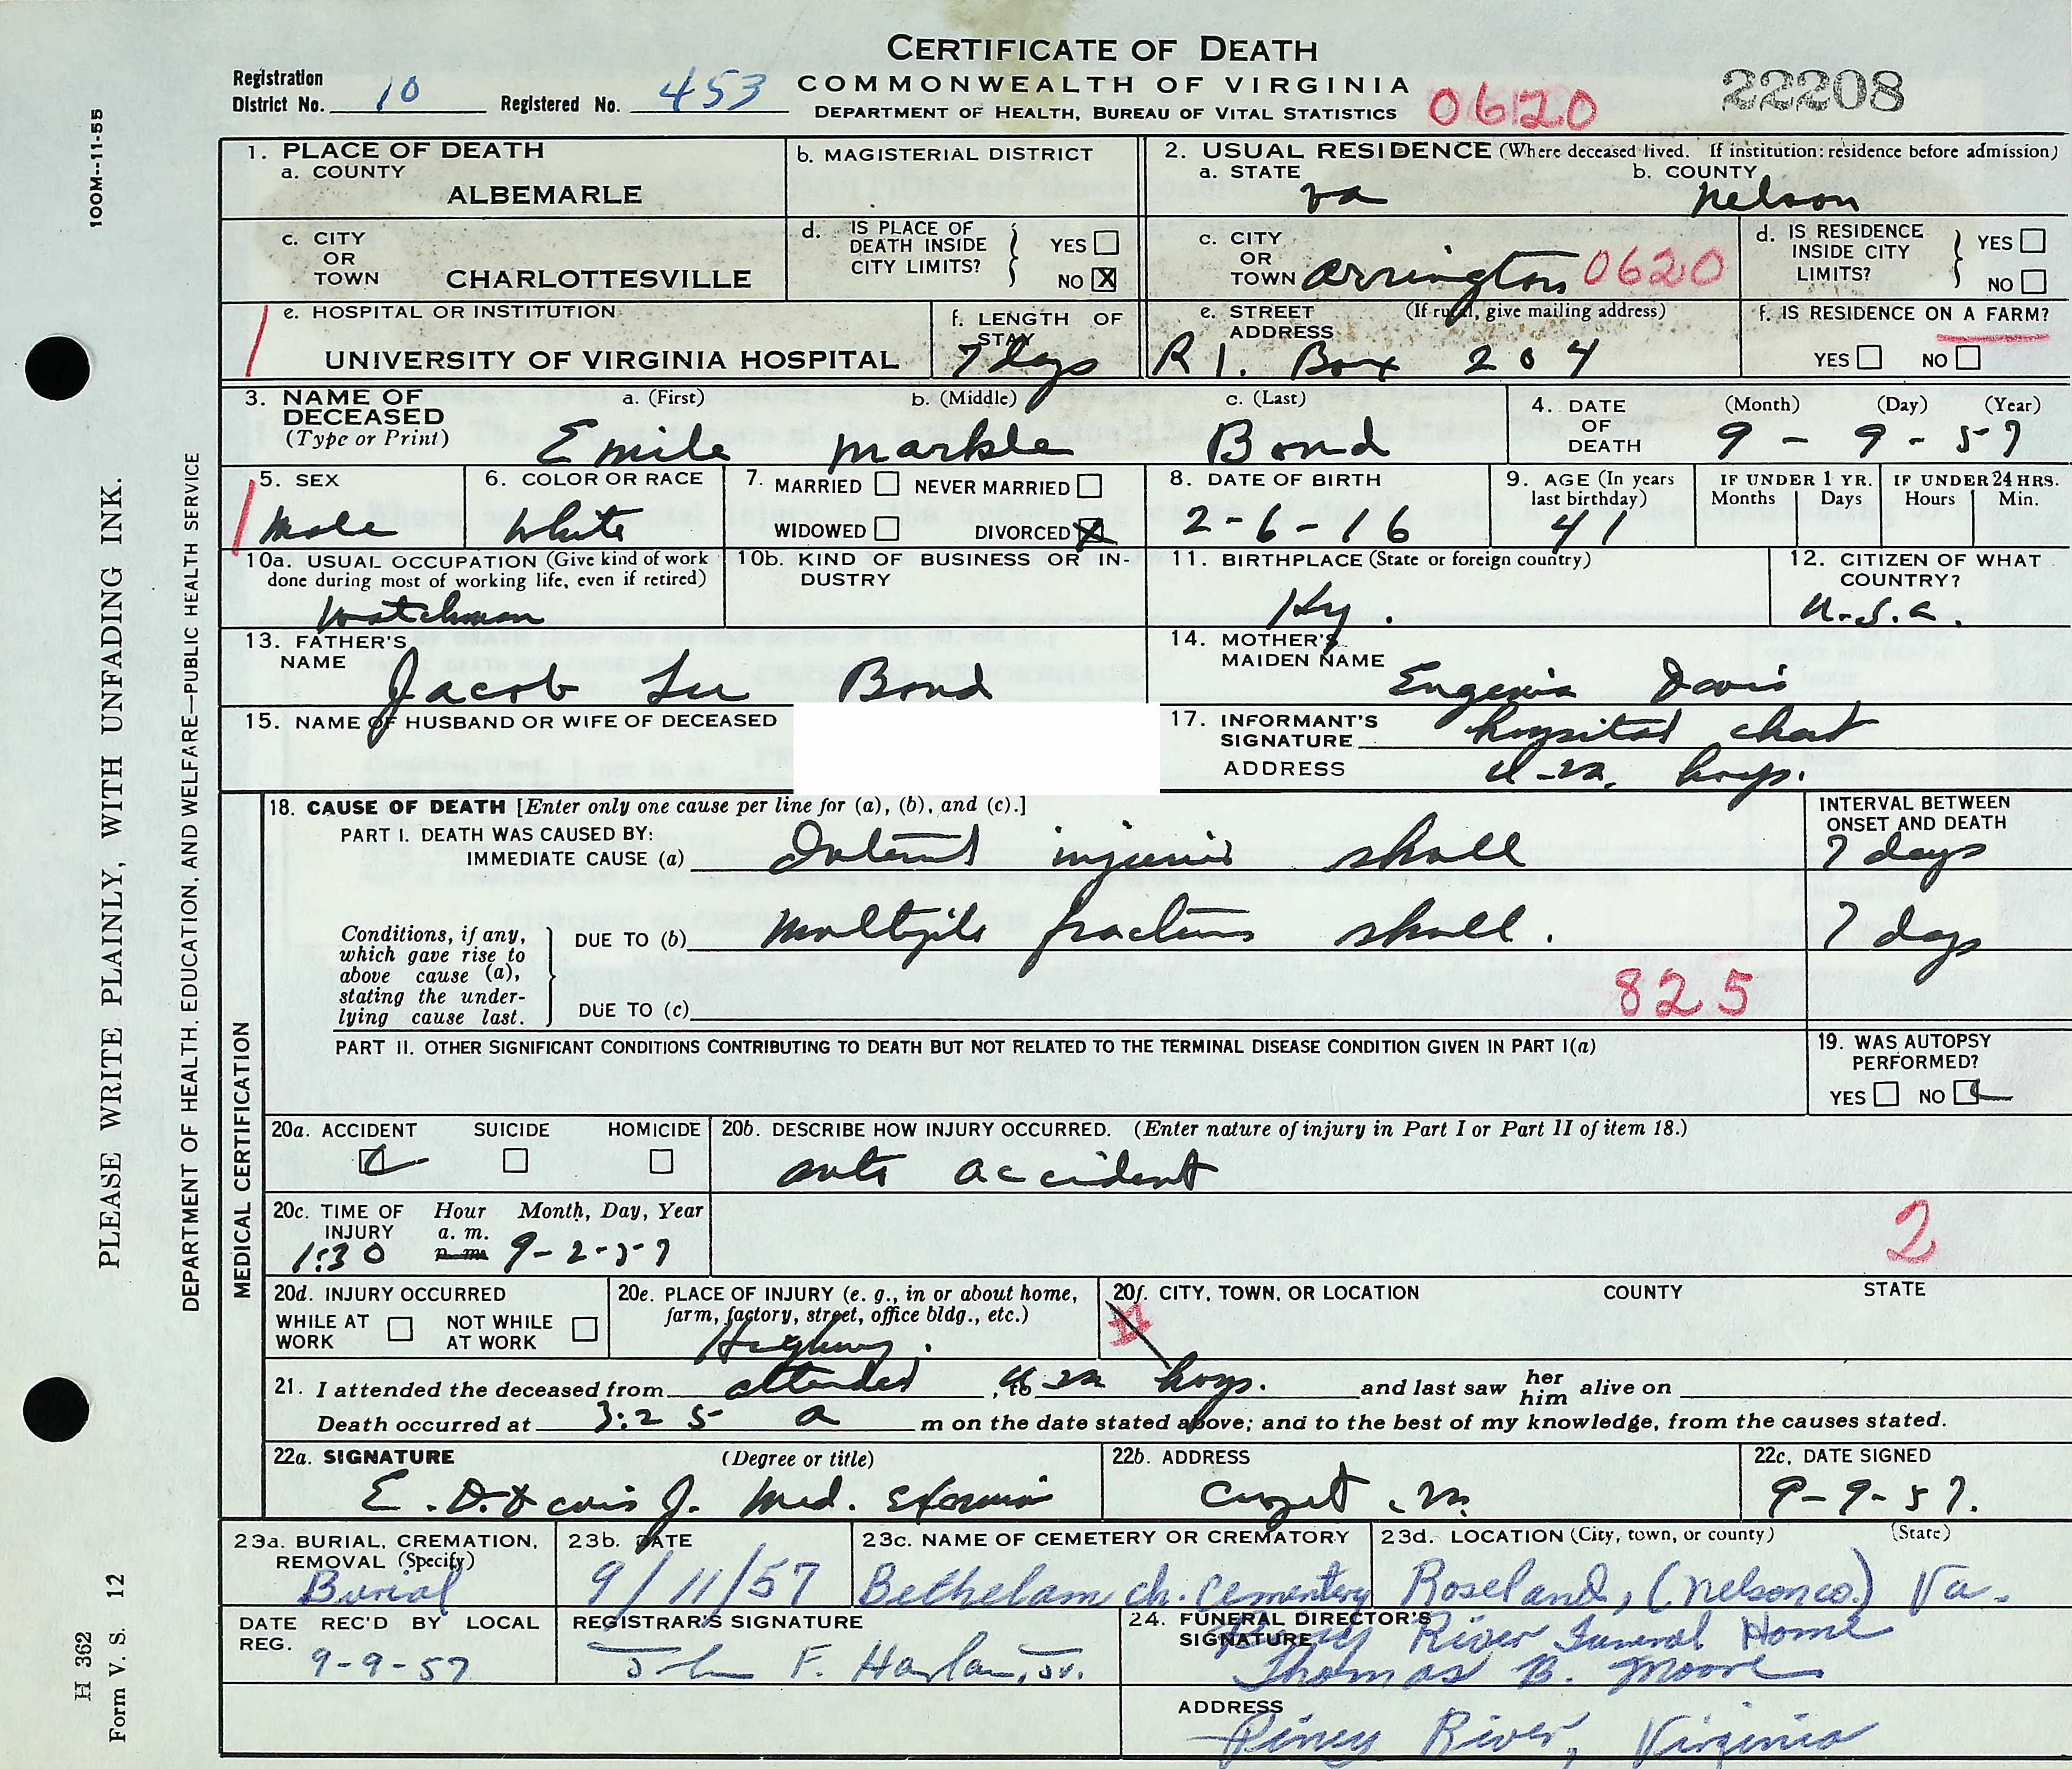 CERTIFICATE OF DEATH
COMMONWEALTH OF VIRGINIA
DEPARTMENT OF HEALTH, BUREAU OF VITAL STATISTICS
Registration District No. 10 Registered No. 453
0620
22208
100M--11-55
PLEASE WRITE PLAINLY, WITH UNFADING INK.
DEPARTMENT OF HEALTH, EDUCATION, AND WELFARE—PUBLIC HEALTH SERVICE
H 362
Form V. S. 12
1. PLACE OF DEATH
a. COUNTY
ALBEMARLE
b. MAGISTERIAL DISTRICT
2. USUAL RESIDENCE (Where deceased lived. If institution: residence before admission)
a. STATE Va
b. COUNTY Nelson
c. CITY OR TOWN CHARLOTTESVILLE
d. IS PLACE OF DEATH INSIDE CITY LIMITS? YES NO X
c. CITY OR TOWN Arrington 0620
d. IS RESIDENCE INSIDE CITY LIMITS? YES NO
e. HOSPITAL OR INSTITUTION
UNIVERSITY OF VIRGINIA HOSPITAL
f. LENGTH OF STAY
7 days
e. STREET ADDRESS (If rural, give mailing address)
R 1. Box 204
f. IS RESIDENCE ON A FARM?
YES NO
3. NAME OF DECEASED (Type or Print)
a. (First) b. (Middle) c. (Last)
Emile Markle Bond
4. DATE OF DEATH (Month) (Day) (Year)
9 - 9 - 57
5. SEX
Male
6. COLOR OR RACE
White
7. MARRIED NEVER MARRIED
WIDOWED DIVORCED X
8. DATE OF BIRTH
2-6-16
9. AGE (In years last birthday)
41
IF UNDER 1 YR. Months Days
IF UNDER 24 HRS. Hours Min.
10a. USUAL OCCUPATION (Give kind of work done during most of working life, even if retired)
Watchman
10b. KIND OF BUSINESS OR INDUSTRY
11. BIRTHPLACE (State or foreign country)
Ky.
12. CITIZEN OF WHAT COUNTRY?
U.S.A.
13. FATHER'S NAME
Jacob Lee Bond
14. MOTHER'S MAIDEN NAME
Eugenia Davis
15. NAME OF HUSBAND OR WIFE OF DECEASED
17. INFORMANT'S SIGNATURE hospital chart
ADDRESS U-Va. hosp.
MEDICAL CERTIFICATION
18. CAUSE OF DEATH [Enter only one cause per line for (a), (b), and (c).]
INTERVAL BETWEEN ONSET AND DEATH
PART I. DEATH WAS CAUSED BY:
IMMEDIATE CAUSE (a) injuries skull
7 days
Conditions, if any, which gave rise to above cause (a), stating the underlying cause last.
DUE TO (b) Multiple fractures skull.
7 days
DUE TO (c)
825
PART II. OTHER SIGNIFICANT CONDITIONS CONTRIBUTING TO DEATH BUT NOT RELATED TO THE TERMINAL DISEASE CONDITION GIVEN IN PART I(a)
19. WAS AUTOPSY PERFORMED?
YES NO
20a. ACCIDENT SUICIDE HOMICIDE
20b. DESCRIBE HOW INJURY OCCURRED. (Enter nature of injury in Part I or Part II of item 18.)
auto accident
20c. TIME OF INJURY Hour a. m. p. m. Month, Day, Year
1:30 9-2-57
2
20d. INJURY OCCURRED
WHILE AT WORK NOT WHILE AT WORK
20e. PLACE OF INJURY (e. g., in or about home, farm, factory, street, office bldg., etc.)
Highway.
20f. CITY, TOWN, OR LOCATION COUNTY STATE
21. I attended the deceased from attended, to U Va hosp. and last saw her him alive on
Death occurred at 3:25 a m on the date stated above; and to the best of my knowledge, from the causes stated.
22a. SIGNATURE (Degree or title)
E. D. Davis Jr. Med. Examiner
22b. ADDRESS
Crozet, Va.
22c. DATE SIGNED
9-9-57.
23a. BURIAL, CREMATION, REMOVAL (Specify)
Burial
23b. DATE
9/11/57
23c. NAME OF CEMETERY OR CREMATORY
Bethelam ch. Cementery
23d. LOCATION (City, town, or county) (State)
Roseland, (Nelson co.) Va.
DATE REC'D BY LOCAL REG.
9-9-57
REGISTRAR'S SIGNATURE
John F. Harlan, Jr.
24. FUNERAL DIRECTOR'S SIGNATURE
Piney River Funeral Home
Thomas B. Moore
ADDRESS
Piney River, Virginia